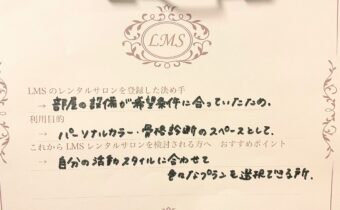 LMS
LMSのレンタルサロンを登録した決め手
→ 部屋の設備が希望条件に合っていたため.
利用目的
→ パーソナルカラー・骨格診断のスペースとして.
これからLMSレンタルサロンを検討される方へ おすすめポイント
→ 自分の活動スタイルに合わせて
色々なプランを選択できる所.